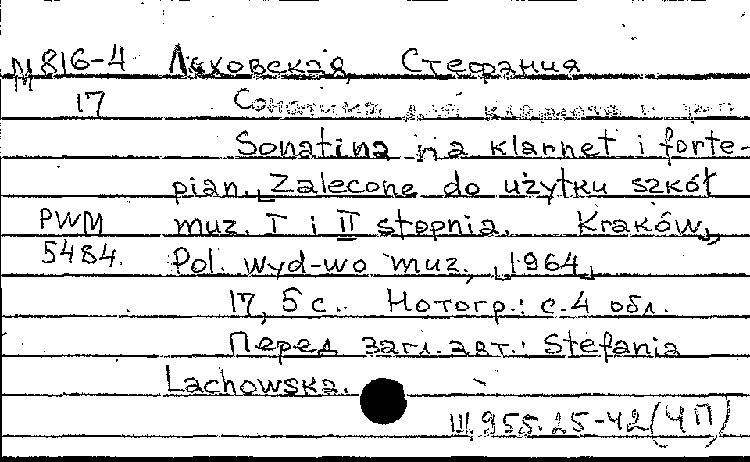 М 816-4 Ляховская, Стефания
17 Сонатина для кларнета и ф-п.
Sonatina na klarnet i forte-
pian. [Zalecone do użytku szkół
PWM muz. I i II stopnia. Kraków,
5484. Pol. wyd-wo muz., [1964]
17, 5 с. Нотогр.: с. 4 обл.
Перед загл. авт.: Stefania
Lachowska.
Ш 955.25-42 (ЧП)